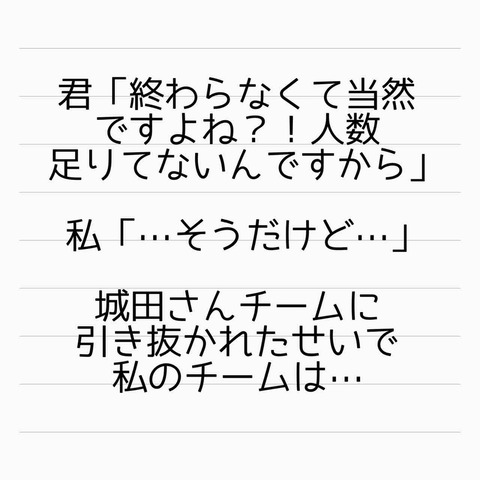 君「終わらなくて当然
ですよね？！人数
足りてないんですから」
私「…そうだけど…」
城田さんチームに
引き抜かれたせいで
私のチームは…